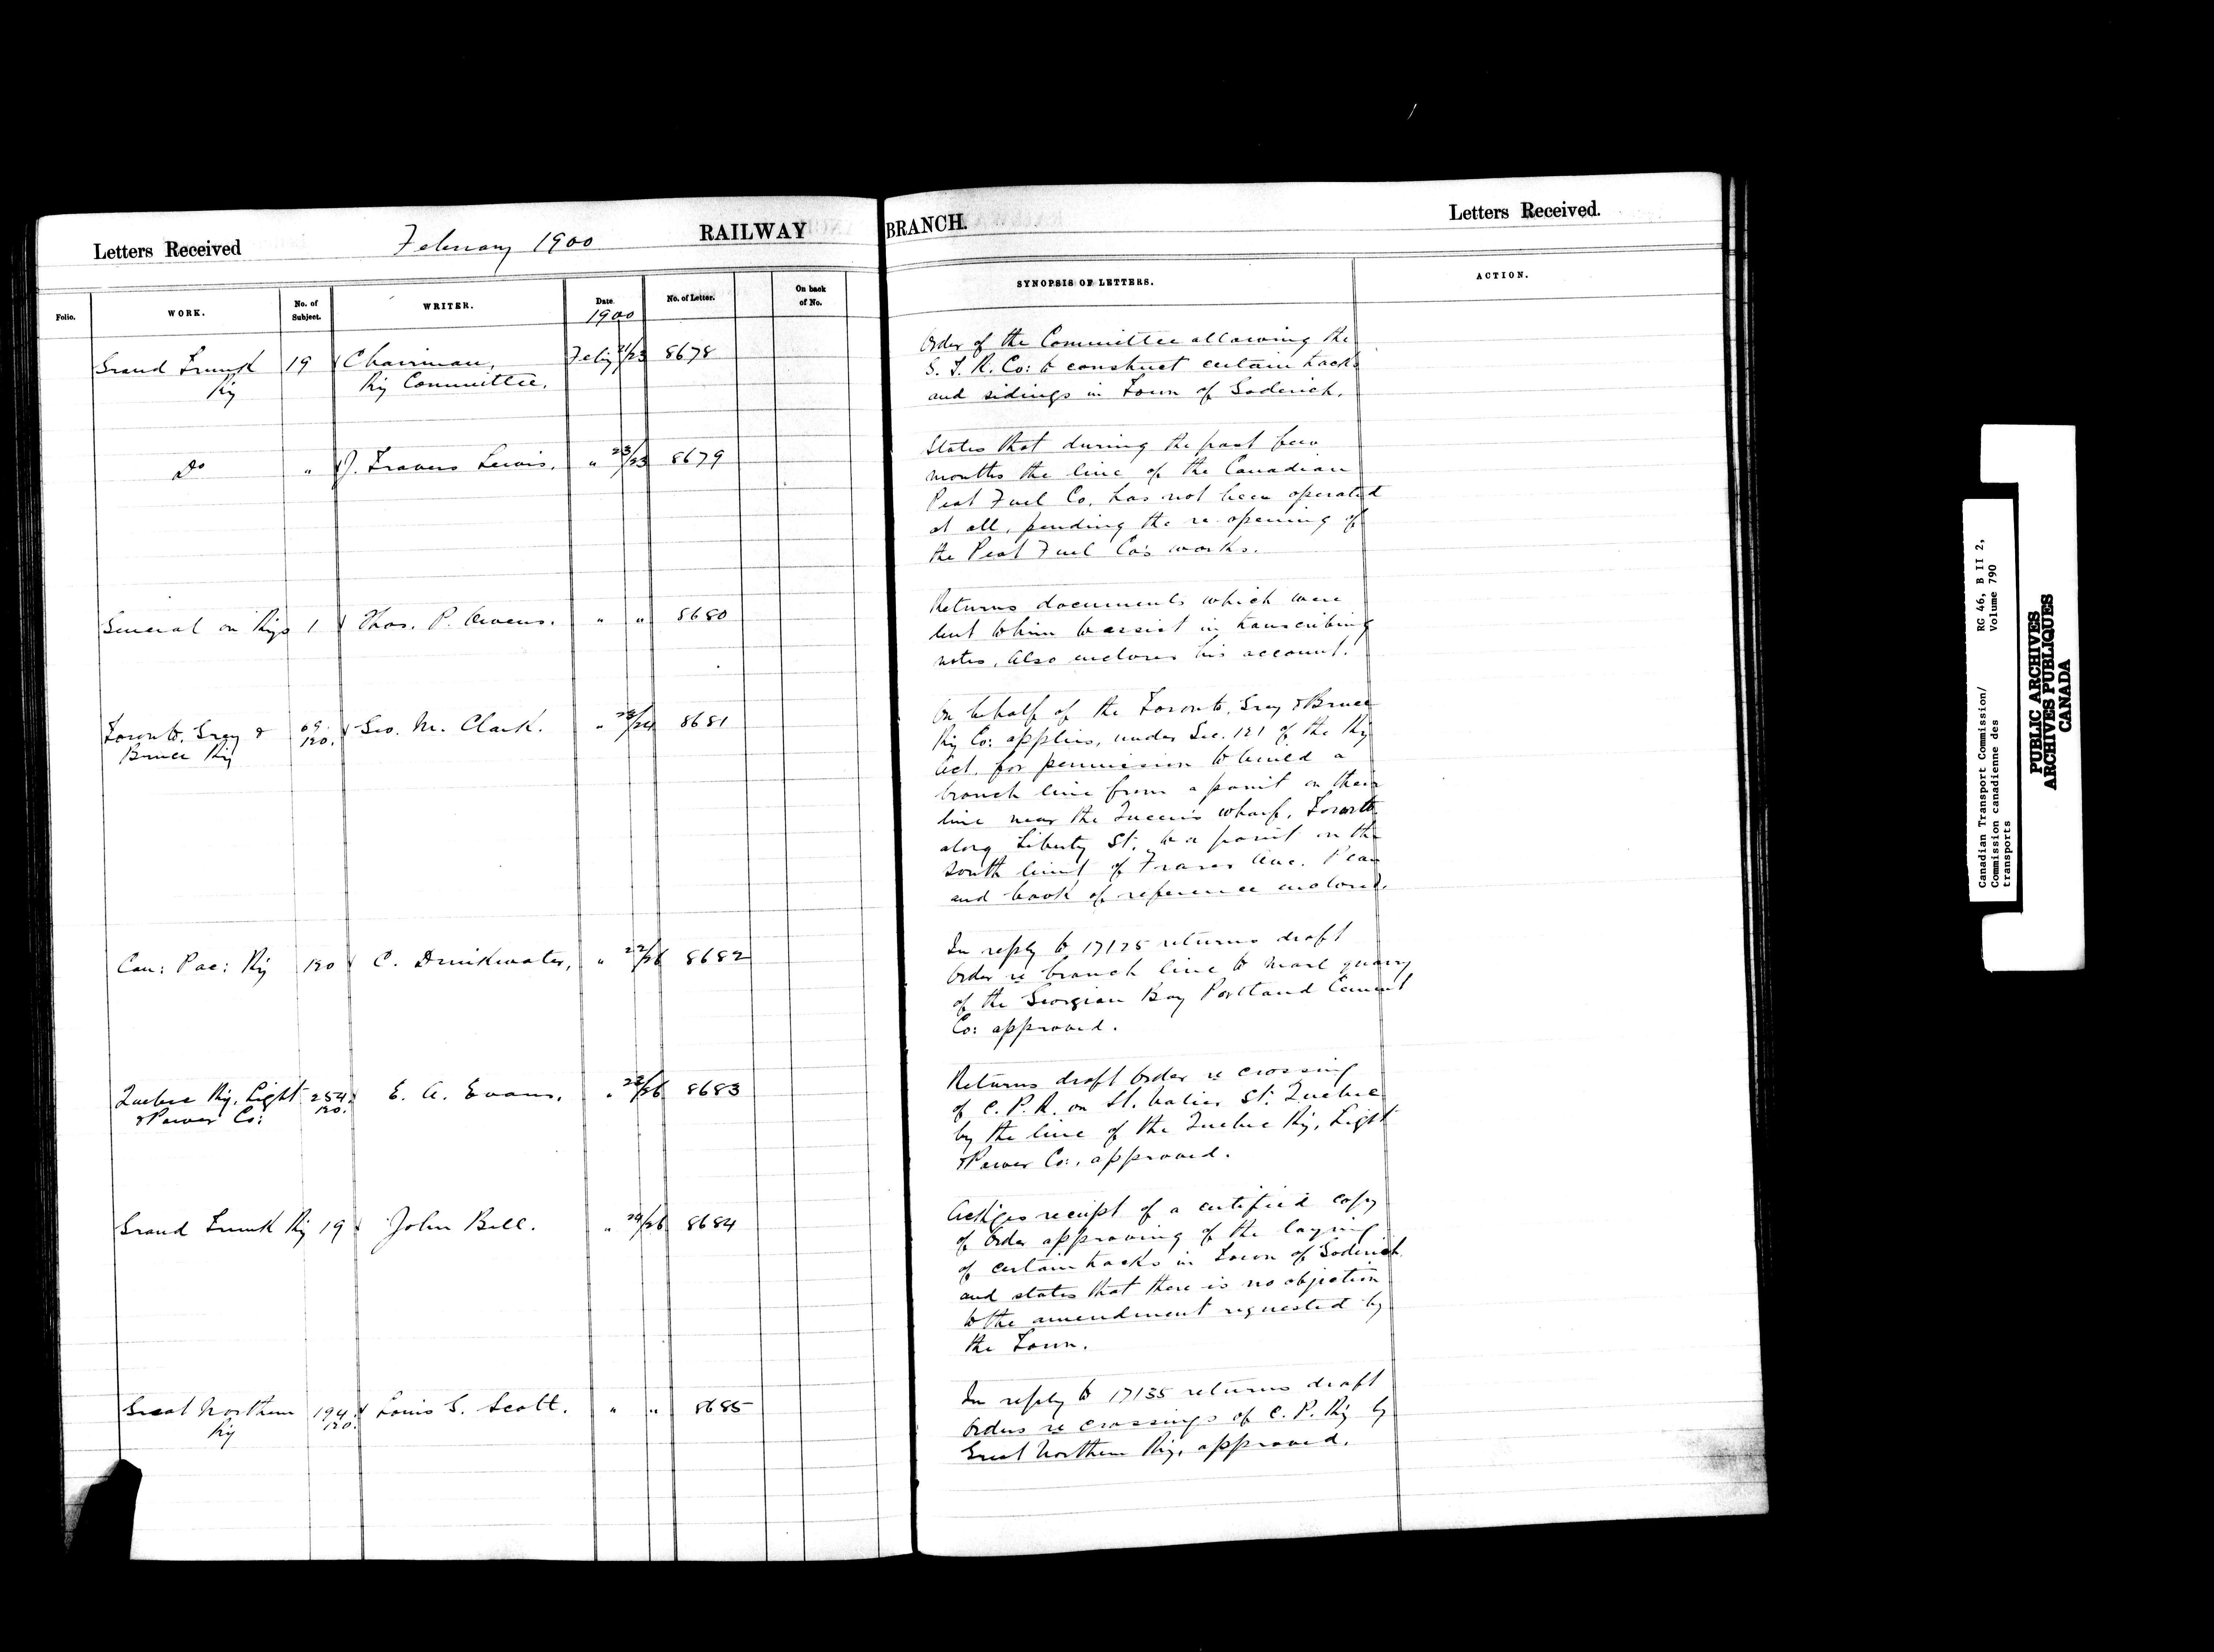 Letters Received
February 1900
RAILWAY
BRANCH.
Letters Received.
Folio.
WORK.
No. of
Subject.
WRITER.
Date.
1900
No. of Letter.
On back
of No.
SYNOPSIS OF LETTERS.
ACTION.
Grand Trunk 19 Chairman, Feby 21/23 8678
Ry Ry Committee.
Order of the Committee allowing the
G. T. R. Co: to construct certain tracks
and sidings in Town of Goderich.
Do " J. Travers Lewis. " 23/23 8679
States that during the past few
months the line of the Canadian
Peat Fuel Co. has not been operated
at all, pending the re opening of
the Peat Fuel Co's works.
General on Rys 1 Thos. P. Owens. " " 8680
Returns documents which were
lent to him to assist in transcribing
notes. Also encloses his account.
Toronto, Grey & 69. Geo. M. Clark. " 23/24 8681
Bruce Ry 120.
On behalf of the Toronto, Grey & Bruce
Ry Co: applies, under Sec. 121 of the Ry
Act, for permission to build a
branch line from a point on their
line near the Queen's Wharf, Toronto
along Liberty St. to a point on the
South limit of Fraser Ave. Plan
and book of reference enclosed.
Can: Pac: Ry 120 C. Drinkwater, " 22/26 8682
In reply to 17125 returns draft
Order re branch line to marl quarry
of the Georgian Bay Portland Cement
Co: approved.
Quebec Ry, Light 254. E. A. Evans, " 22/26 8683
& Power Co: 120.
Returns draft Order re crossing
of C. P. R. on St. Valier St. Quebec
by the line of the Quebec Ry, Light
& Power Co:, approved.
Grand Trunk Ry 19 John Bell. " 24/26 8684
Ackges receipt of a certified copy
of Order approving of the laying
of certain tracks in Town of Goderich
and states that there is no objection
to the amendment requested by
the Town.
Great Northern 194. Louis G. Scott. " " 8685
Ry 120.
In reply to 17135 returns draft
Orders re crossings of C. P. Ry by
Great Northern Ry, approved.
Canadian Transport Commission/
Commission canadienne des
transports
RG 46, B II 2,
Volume 790
PUBLIC ARCHIVES
ARCHIVES PUBLIQUES
CANADA